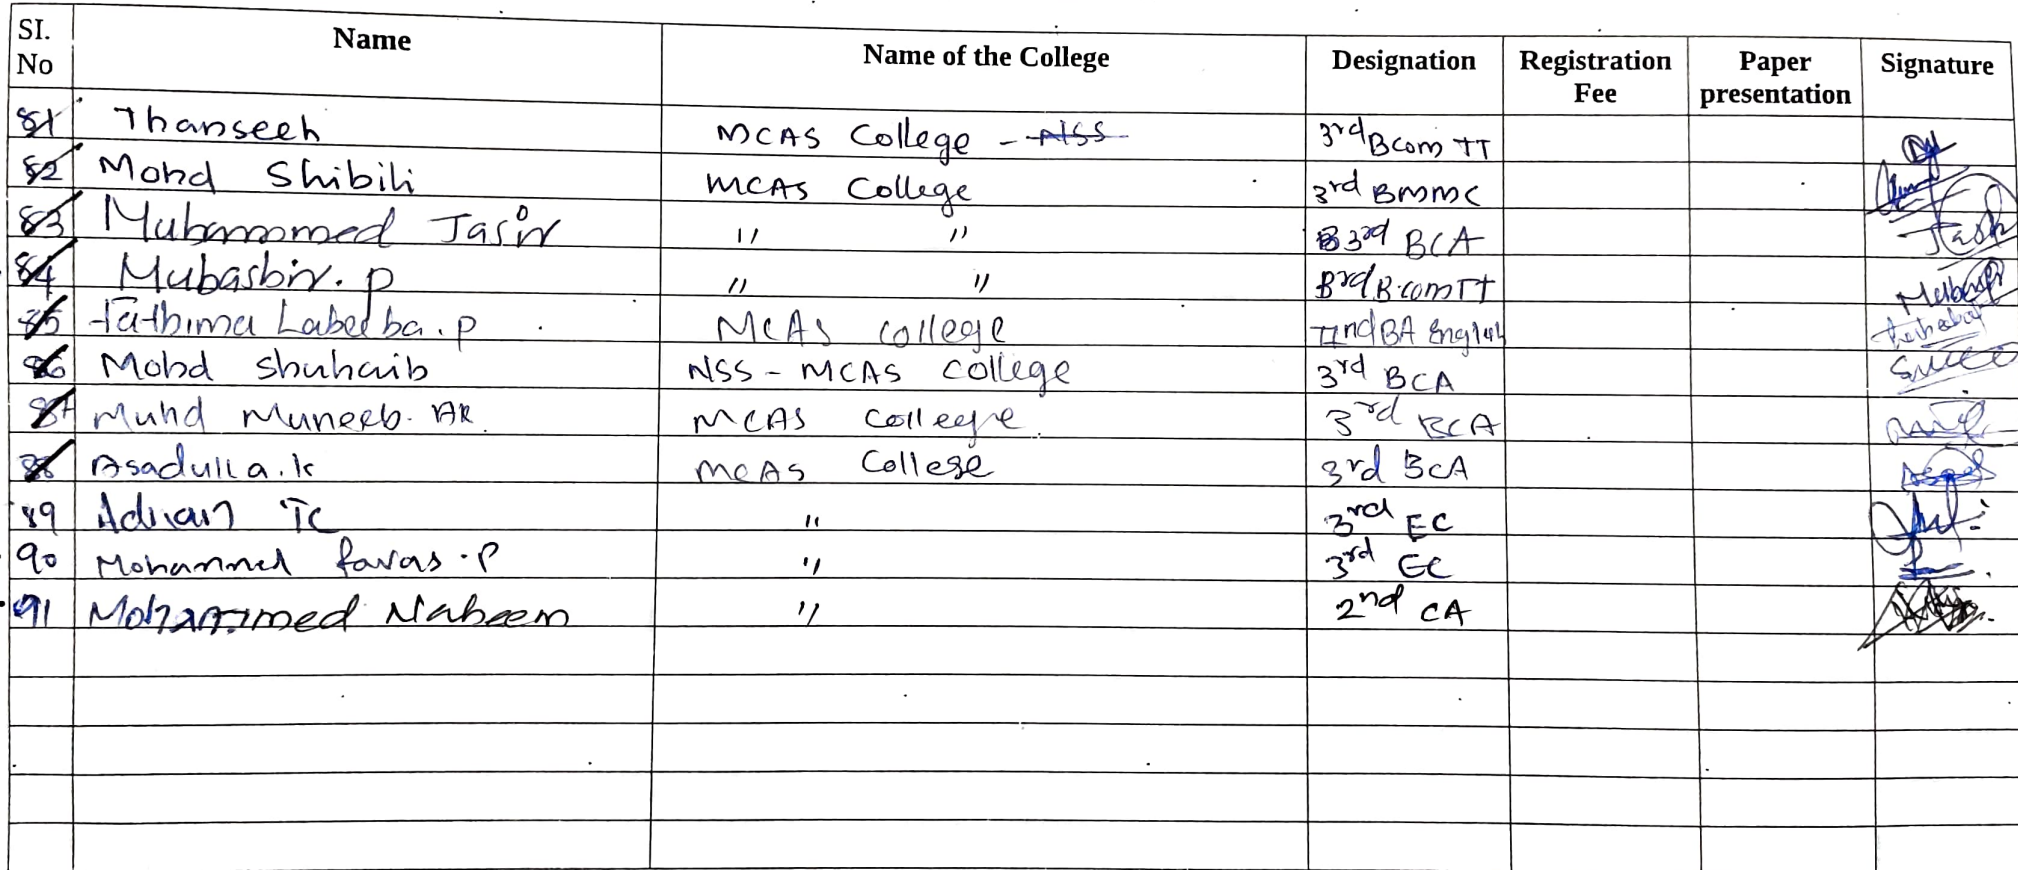 SI. No Name Name of the College Designation Registration Fee Paper presentation Signature
81 Thanseeh MCAS College - NSS 3rd Bcom TT
82 Mohd Shibili MCAS College 3rd BMMC
83 Muhammed Jasir " " 3rd BCA
84 Mubashir. p " " 3rd B.com TT
85 Fathima Labeeba. p MCAS College IInd BA English
86 Mohd Shuhaib NSS - MCAS College 3rd BCA
87 Muhd Muneeb. AK MCAS College 3rd BCA
88 Asadulla. k MCAS College 3rd BCA
89 Adnan TC " 3rd EC
90 Mohammed favas . P " 3rd EC
91 Mohammed Nabeem " 2nd CA